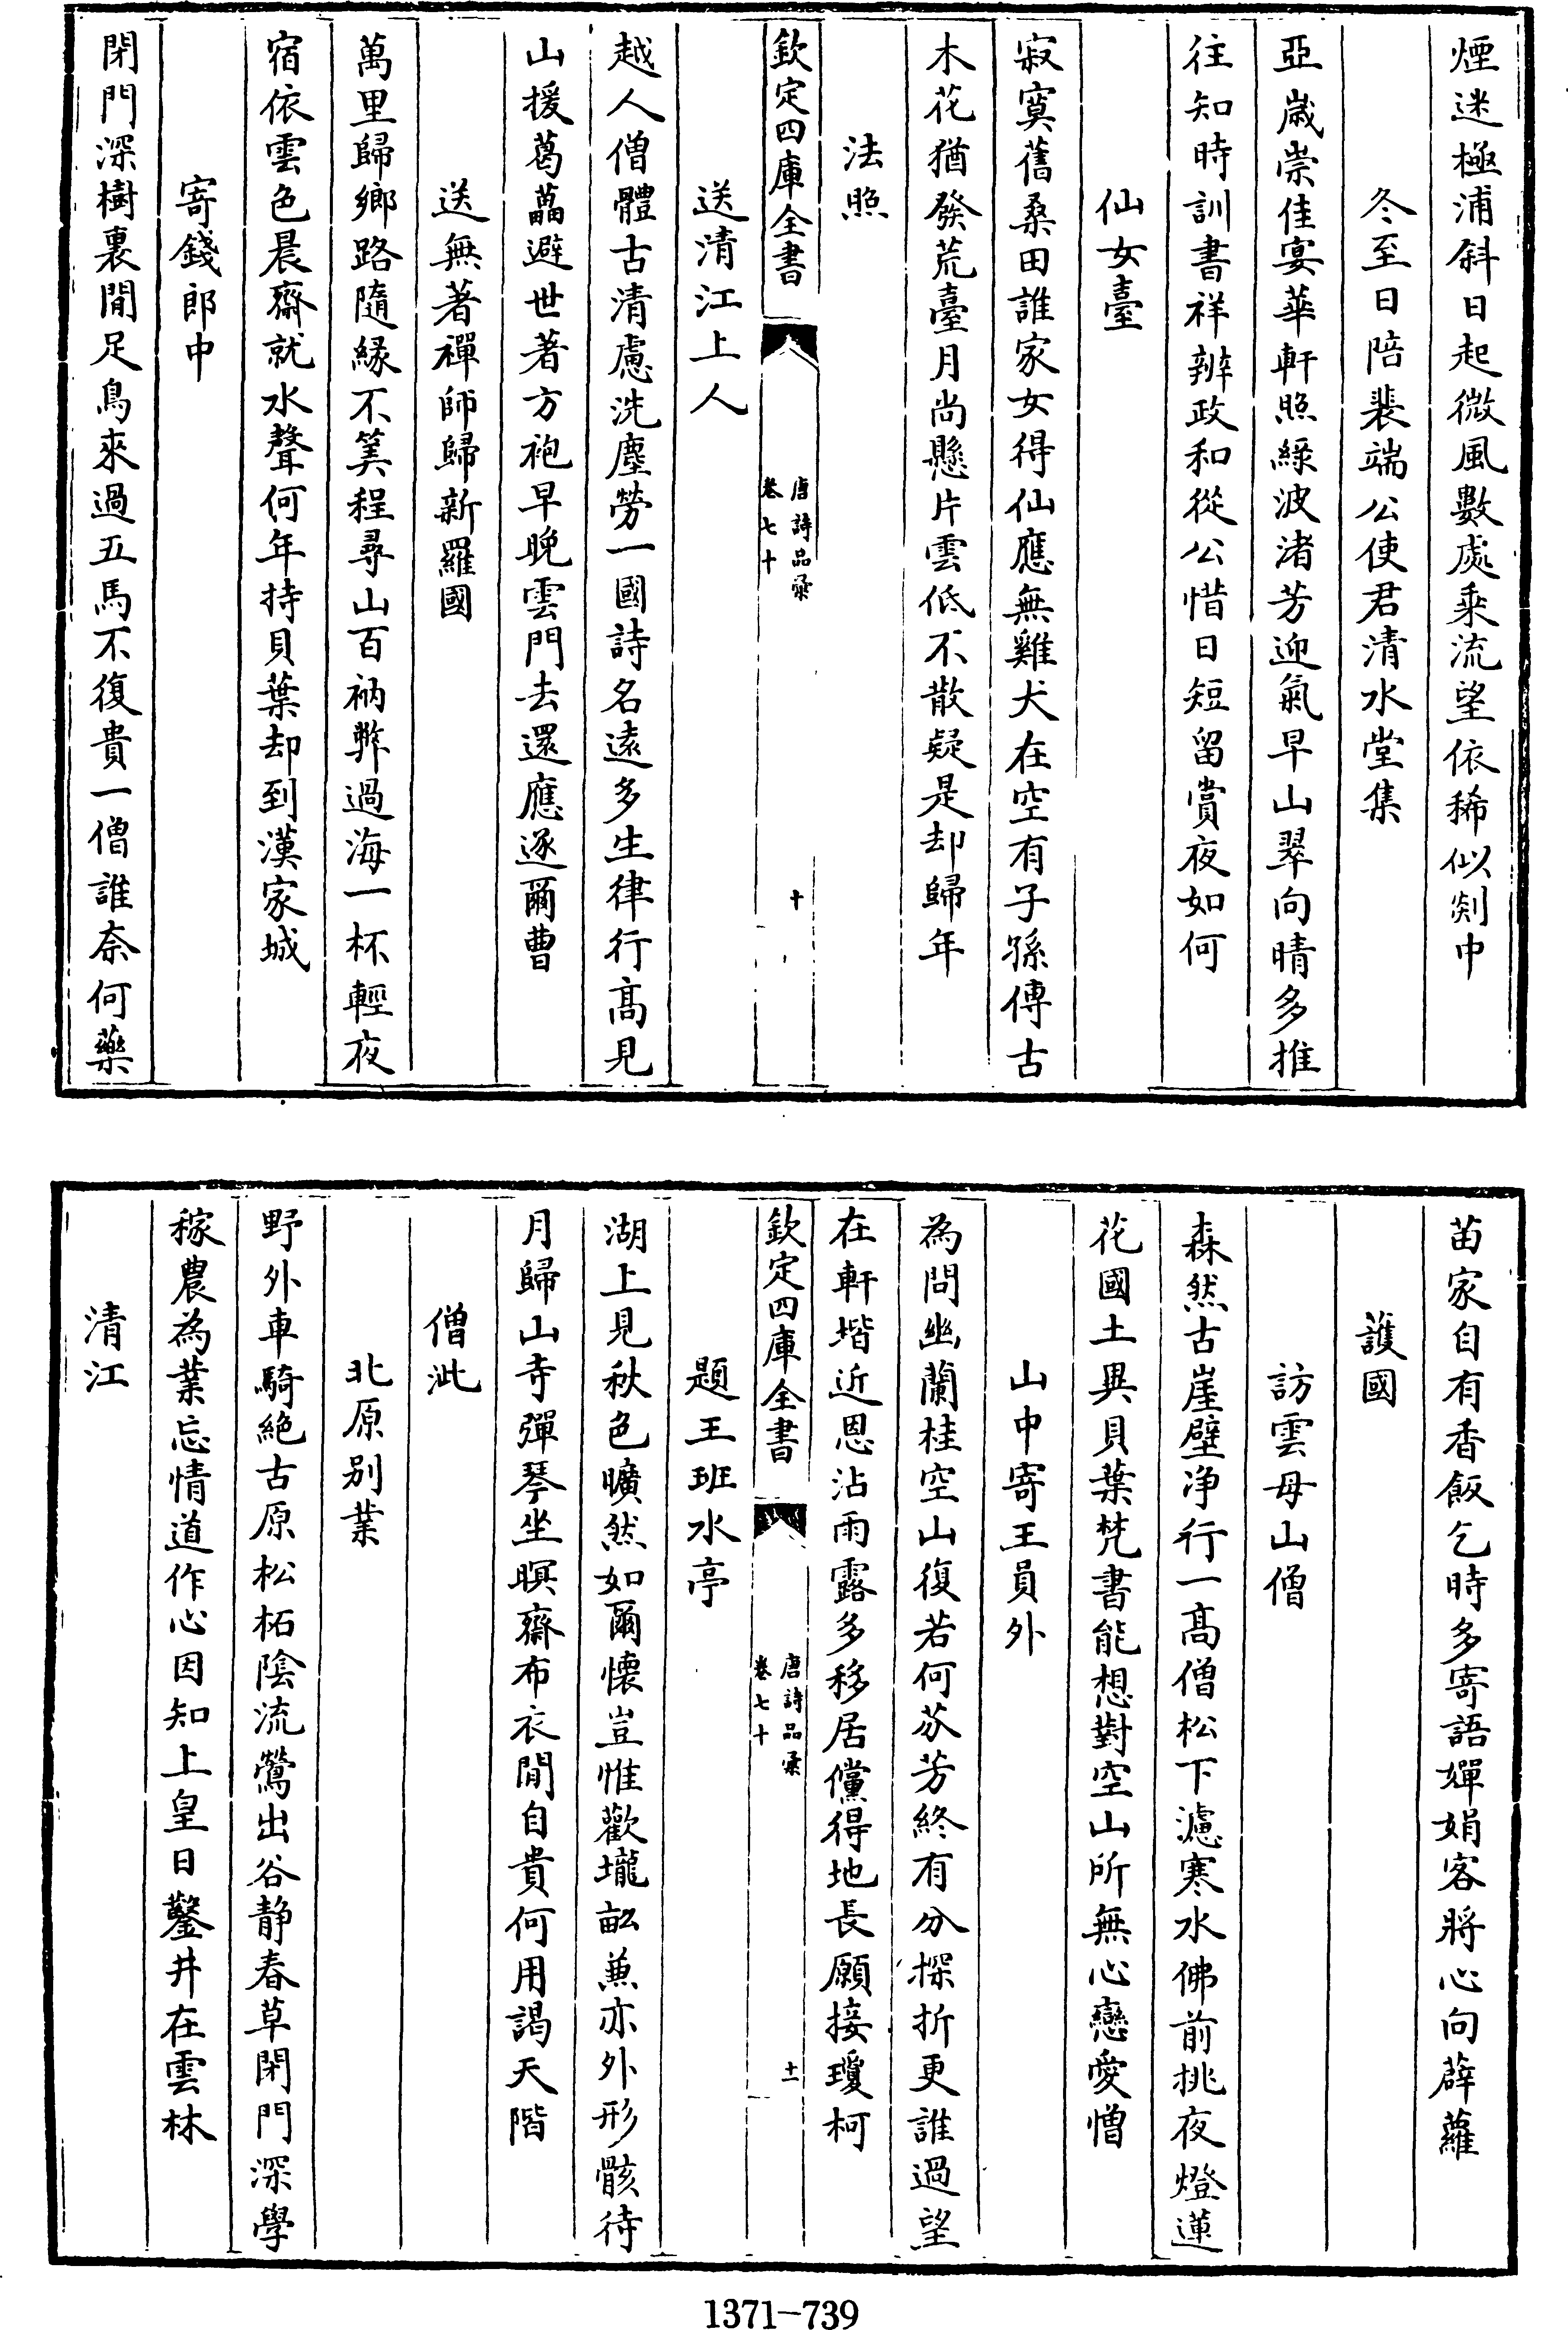 煙迷極浦斜日起微風數處乘流望依稀似剡中
冬至日陪裴端公使君清水堂集
亞嵗崇佳宴華軒照綠波渚芳迎氣早山翠向晴多推
往知時訓書祥辨政和從公惜日短留賞夜如何
仙女臺
寂寞舊桑田誰家女得仙應無雞犬在空有子孫傳古
木花猶發荒臺月尚懸片雲低不散疑是却歸年
法照
欽定四庫全書
唐詩品彚
卷七十
十
送清江上人
越人僧體古清慮洗塵勞一國詩名逺多生律行髙見
山援葛藟避世著方袍早晚雲門去還應逐爾曹
送無著禪師歸新羅國
萬里歸鄉路隨緣不筭程尋山百衲弊過海一杯輕夜
宿依雲色晨齋就水聲何年持貝葉却到漢家城
寄錢郎中
閉門深樹裏閒足鳥來過五馬不復貴一僧誰奈何藥
苗家自有香飯乞時多寄語嬋娟客將心向薜蘿
護國
訪雲母山僧
森然古崖壁净行一髙僧松下濾寒水佛前挑夜燈蓮
花國土異貝葉梵書能想對空山所無心戀愛憎
山中寄王員外
為問幽蘭桂空山復若何芬芳終有分採折更誰過望
在軒堦近恩沾雨露多移居儻得地長願接瓊柯
欽定四庫全書
唐詩品彚
卷七十
十一
題王班水亭
湖上見秋色曠然如爾懷豈惟歡壠畝兼亦外形骸待
月歸山寺彈琴坐暝齋布衣閒自貴何用謁天階
僧泚
北原别業
野外車騎絶古原松柘陰流鶯出谷静春草閉門深學
稼農為業忘情道作心因知上皇日鑿井在雲林
清江
1371-739